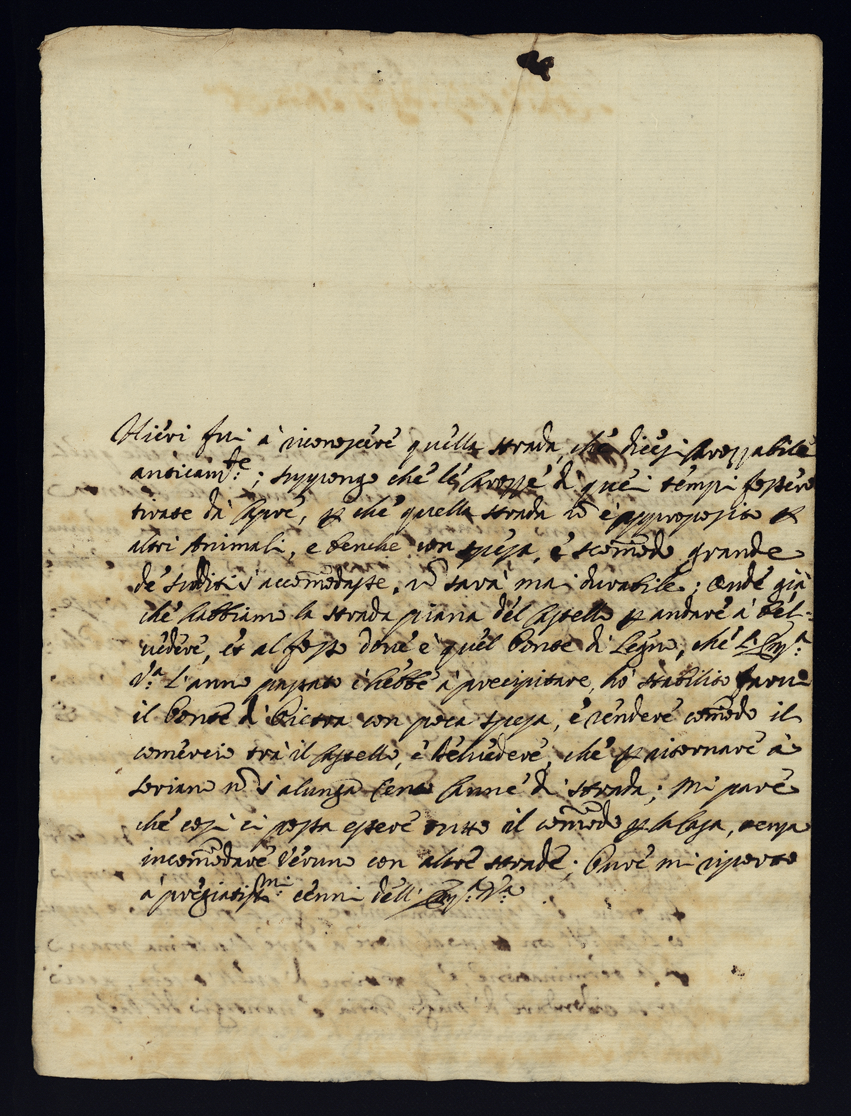 Hieri fui à riconoscere quella strada, che dicesi Carozzabile
anticam.te; suppongo che le Carozze di quei tempi fossero
tirate dà Capre, p che quella strada nō è approposito p
altri Animali, e benche con spesa, è scomodo grande
de sudditi s'accomodasse, nō sarà mai durabile; Onde già
che habbiamo la strada piana del Castello p andare à Bel-
vedere, et al fosso doue è quel Ponte di Legno, che
V.a L'anno passato hebbe à precipitare, hò stabilito farui
il Ponte di Pietra con poca spesa, è rendere comodo il
comercio trà il Castello, è Beluedere, che p ritornare à
Soriano nō s'alunga Cento Canne di strada; Mi pare
che cosi ci possa essere tutto il comodo p la Casa, senza
incomodare veruno con altre strade; Pure mi riporto
à pregiatiss.mi cenni dell' V.a